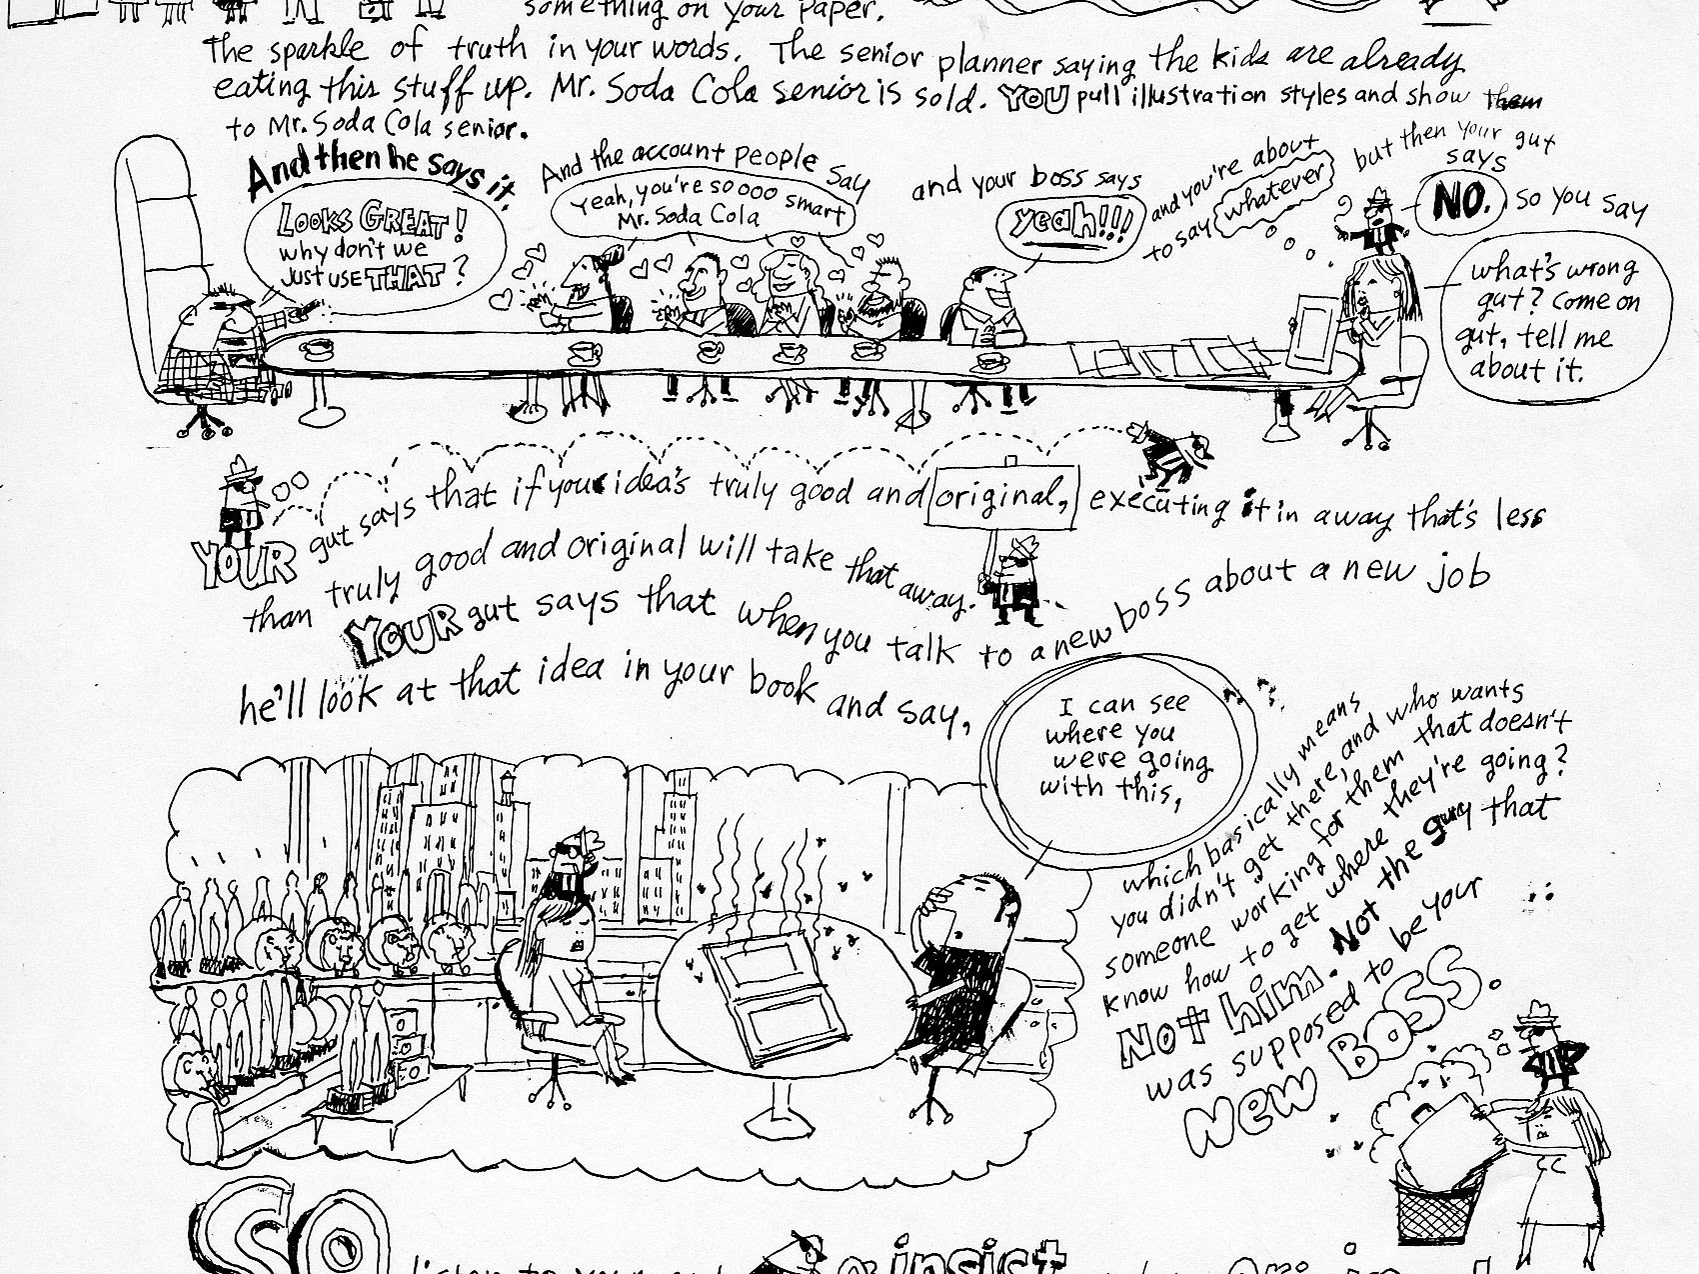 something on your paper.
The sparkle of truth in your words. The senior planner saying the kids are already
eating this stuff up. Mr. Soda Cola senior is sold. YOU pull illustration styles and show them
to Mr. Soda Cola senior.
And then he says it.
LOOKS GREAT!
why don't we
just use THAT?
And the account people say
Yeah, you're soooo smart
Mr. Soda Cola
and your boss says
yeah!!!
and you're about
to say whatever
but then your gut
says
NO.
so you say
what's wrong
gut? Come on
gut, tell me
about it.
YOUR gut says that if your idea's truly good and original, executing it in a way that's less
than truly good and original will take that away.
YOUR gut says that when you talk to a new boss about a new job
he'll look at that idea in your book and say,
I can see
where you
were going
with this,
which basically means
you didn't get there, and who wants
someone working for them that doesn't
know how to get where they're going?
Not him. Not the guy that
was supposed to be your
New BOSS.
SO listen to your gut
insist